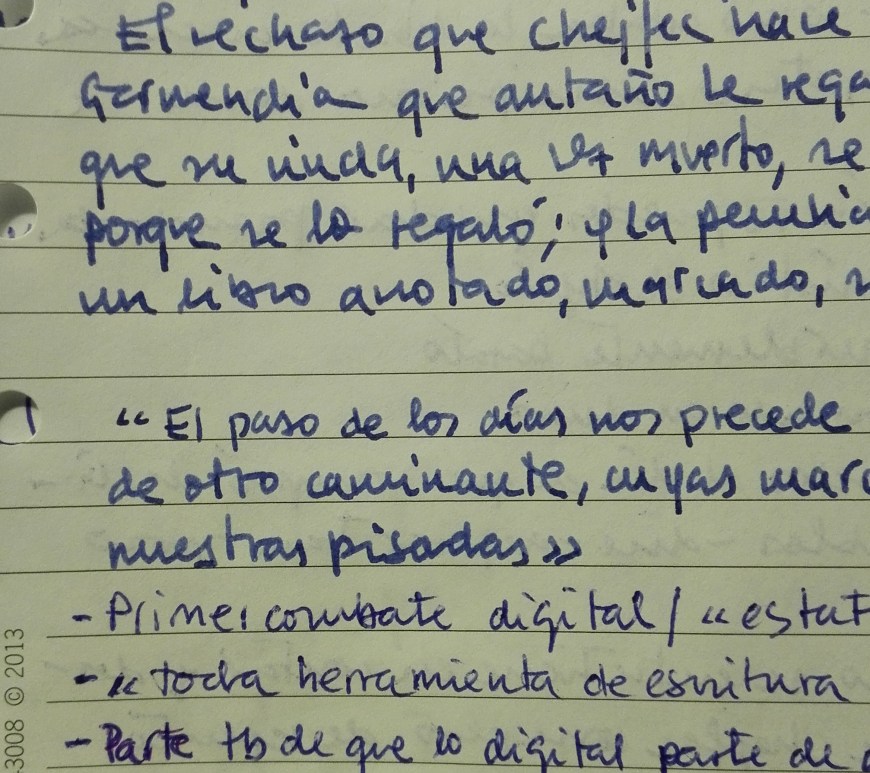 El rechazo que Chejfec hace
Garmendia que antaño le rega
que su viuda, una vez muerto, se
porque se lo regaló; y la
un libro anotado, marcado,
“El paso de los días nos precede
de otro caminante, cuyas marc
nuestras pisadas»
- Primer combate digital / «estat
- «toda herramienta de escritura
- Parte tb de que lo digital parte de
3008 © 2013